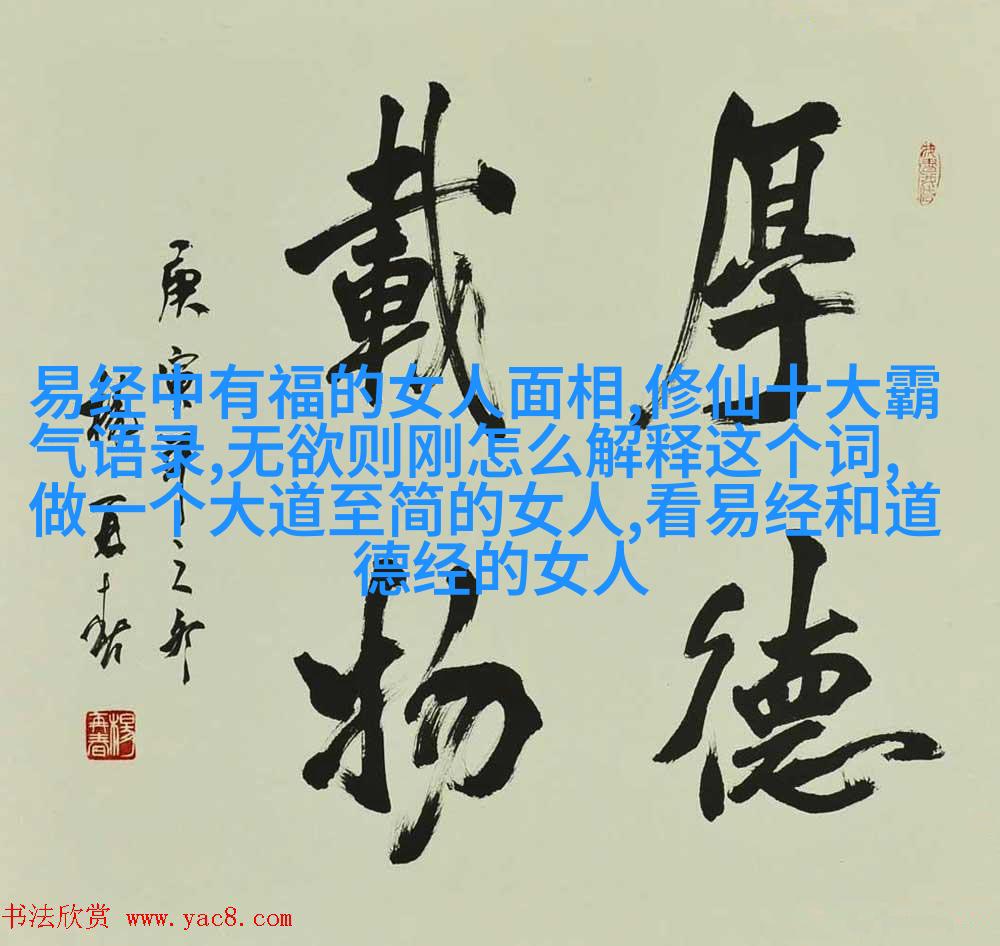 厚德
載物
庚寅
楊再春
楊再春
易经中有福的女人面相,修仙十大霸
气语录,无欲则刚怎么解释这个词,
做一个大道至简的女人,看易经和道
德经的女人
书法欣赏 www.yac8.com